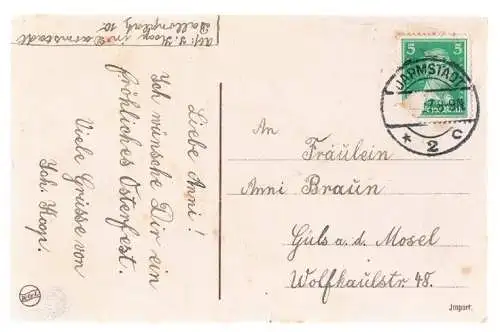 Abs: J. Koop in Darmstadt
Ballonplatz 10
Liebe Anni!
Ich wünsche Dir ein
fröhliches Osterfest.
Viele Grüsse von
Joh. Koop.
5 5
DARMSTADT
* 2 C
An Fräulein
Anni Braun
Güls a. d. Mosel
Wolfkaulstr 48.
Import.